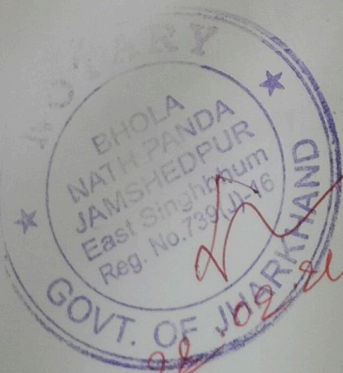 NOTARY
BHOLA
NATH PANDA
JAMSHEDPUR
East Singhbhum
GOVT. OF JHARKHAND